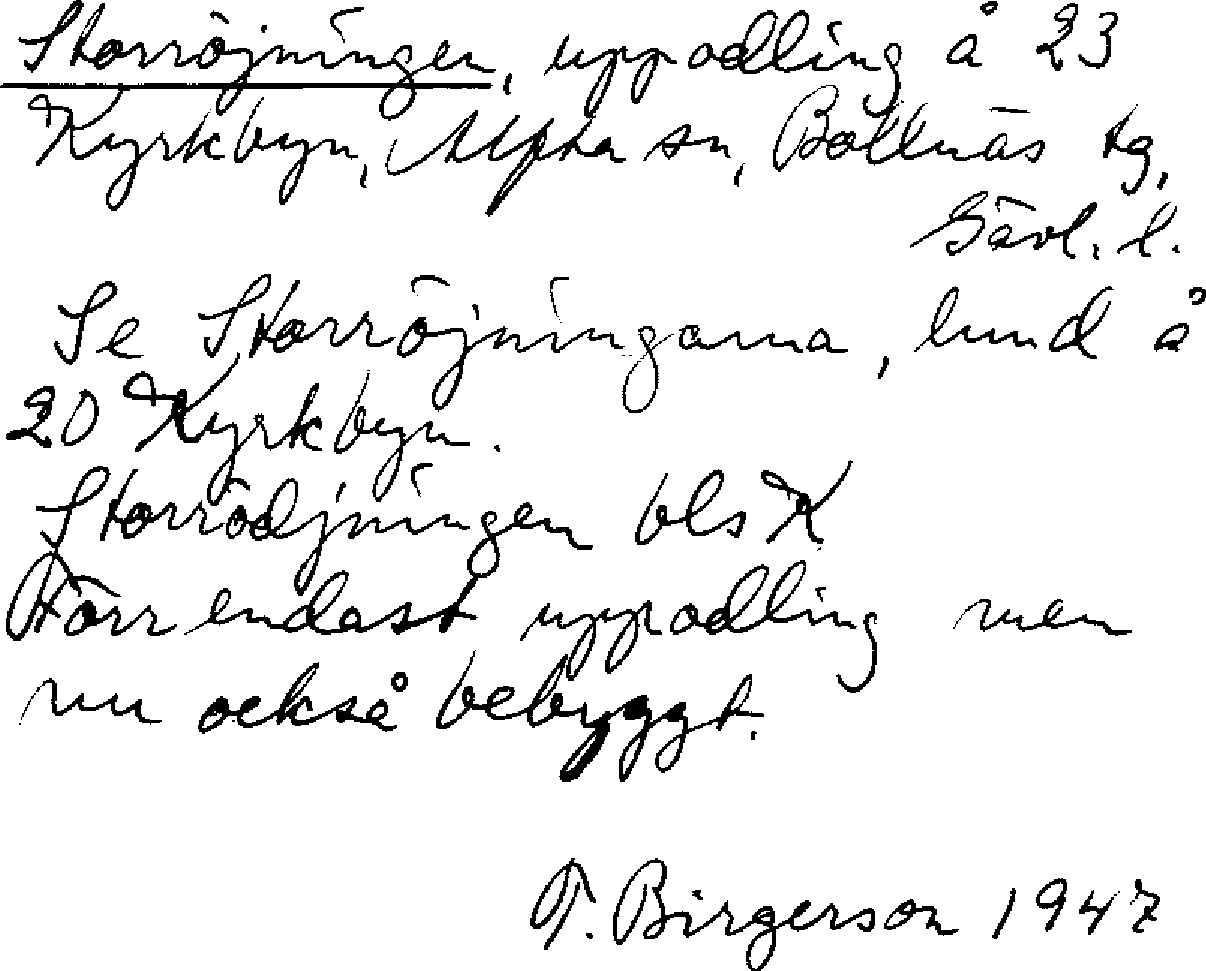 Storröjningen, uppodling å 23
Kyrkbyn, Alfta sn, Bollnäs tg,
Gävl. l.
Se Storröjningarna, lund å
20 Kyrkbyn.
Storrödjningen bls K
Förr endast uppodling men
nu också bebyggt.
F. Birgerson 1947